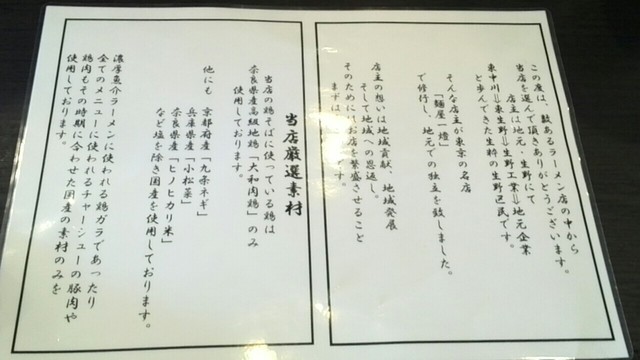 この度は、数あるラーメン店の中から
当店を選んで頂きありがとうございます。
店主は地元・生野にて
東中川⇒東生野⇒生野工業⇒地元企業
と歩んできた生粋の生野区民です。
そんな店主が東京の名店
「麺屋一燈」
で修行し、地元での独立を致しました。
店主の想いは地域貢献、地域発展
そして地域への恩返し。
そのためにはお店を繁盛させること
まずは
です。
当店厳選素材
当店の鶏そばに使っている鶏は
奈良県産高級地鶏「大和肉鶏」のみ
使用しております。
他にも 京都府産「九条ネギ」
兵庫県産「小松菜」
奈良県産「ヒノヒカリ米」
など塩を除き国産を使用しております。
濃厚魚介ラーメンに使われる鶏ガラであったり
全てのメニューに使われるチャーシューの豚肉や
鶏肉もその時期に合わせた国産の素材のみを
使用しております。